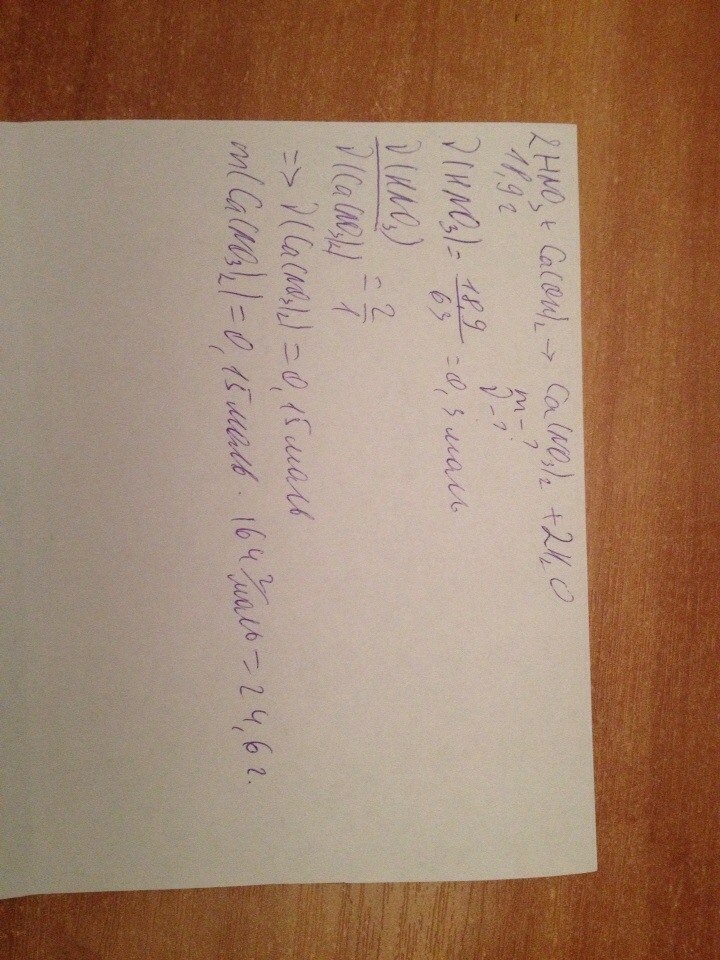 2HNO₃ + Ca(OH)₂ → Ca(NO₃)₂ + 2H₂O
18,9г m-?
ν-?
ν(HNO₃) = 18,9/63 = 0,3 моль
ν(HNO₃)/ν(Ca(NO₃)₂) = 2/1
=> ν(Ca(NO₃)₂) = 0,15 моль
m(Ca(NO₃)₂) = 0,15 моль · 164 г/моль = 24,6 г.